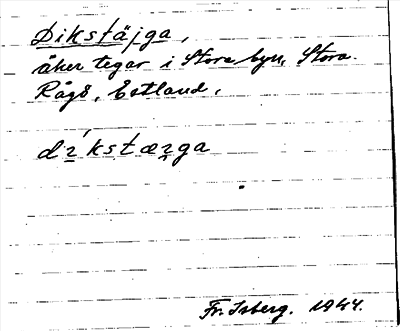 Dikstäjga,
åker tegar i Stora byn, Stora
Rågö, Estland.
Fr. Isberg. 1944.